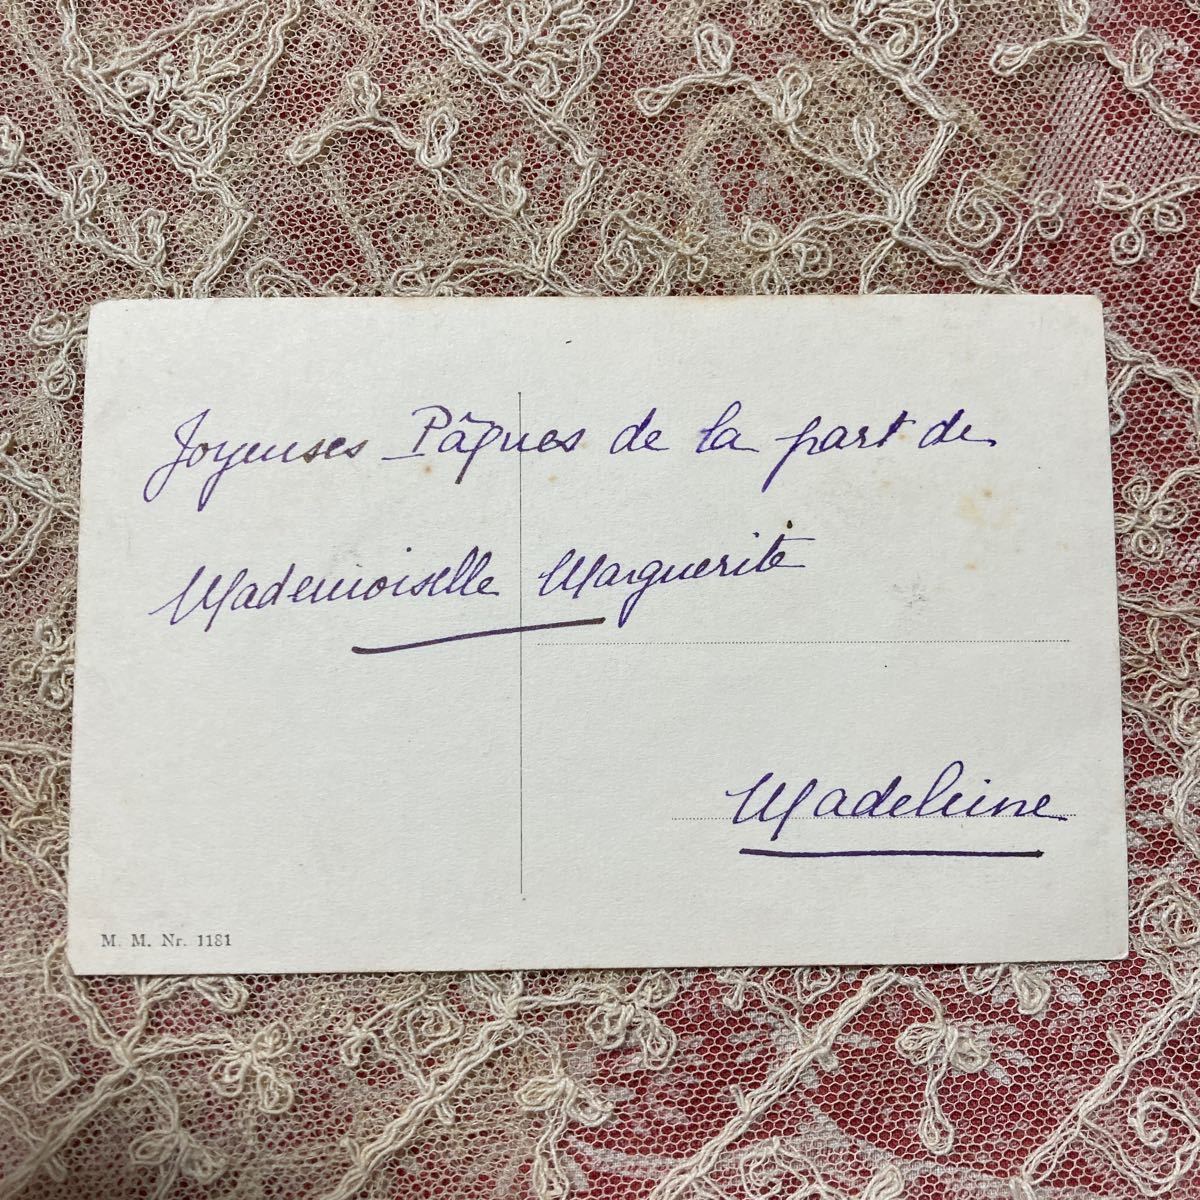 Joyeuses Pâques de la part de
Mademoiselle Marguerite
Madeleine
M. M. Nr. 1181